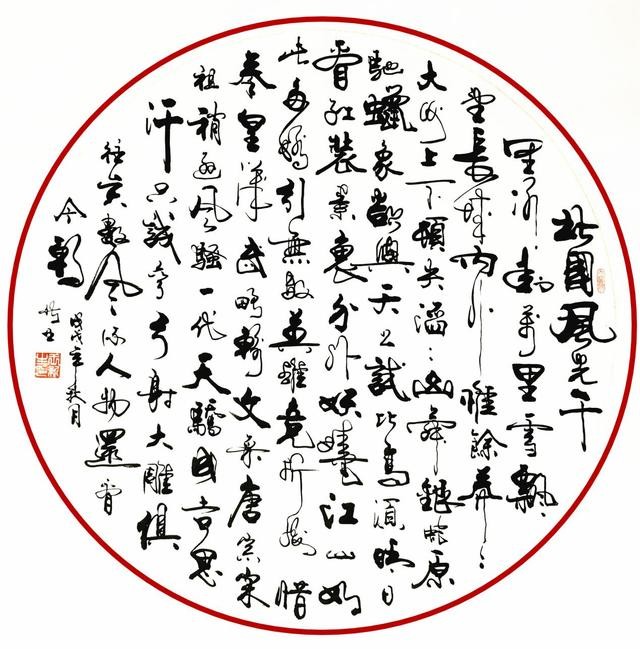 北國風光千
里冰封萬里雪飄
望長城内外惟餘莽莽
大河上下頓失滔滔山舞銀蛇原
馳蠟象欲與天公試比高須晴日
看紅裝素裹分外妖嬈江山如
此多嬌引無數英雄競折腰惜
秦皇漢武略輸文采唐宗宋
祖稍遜風騷一代天驕成吉思
汗只識彎弓射大雕俱
往矣數風流人物還看
今朝
戊戌年秋月